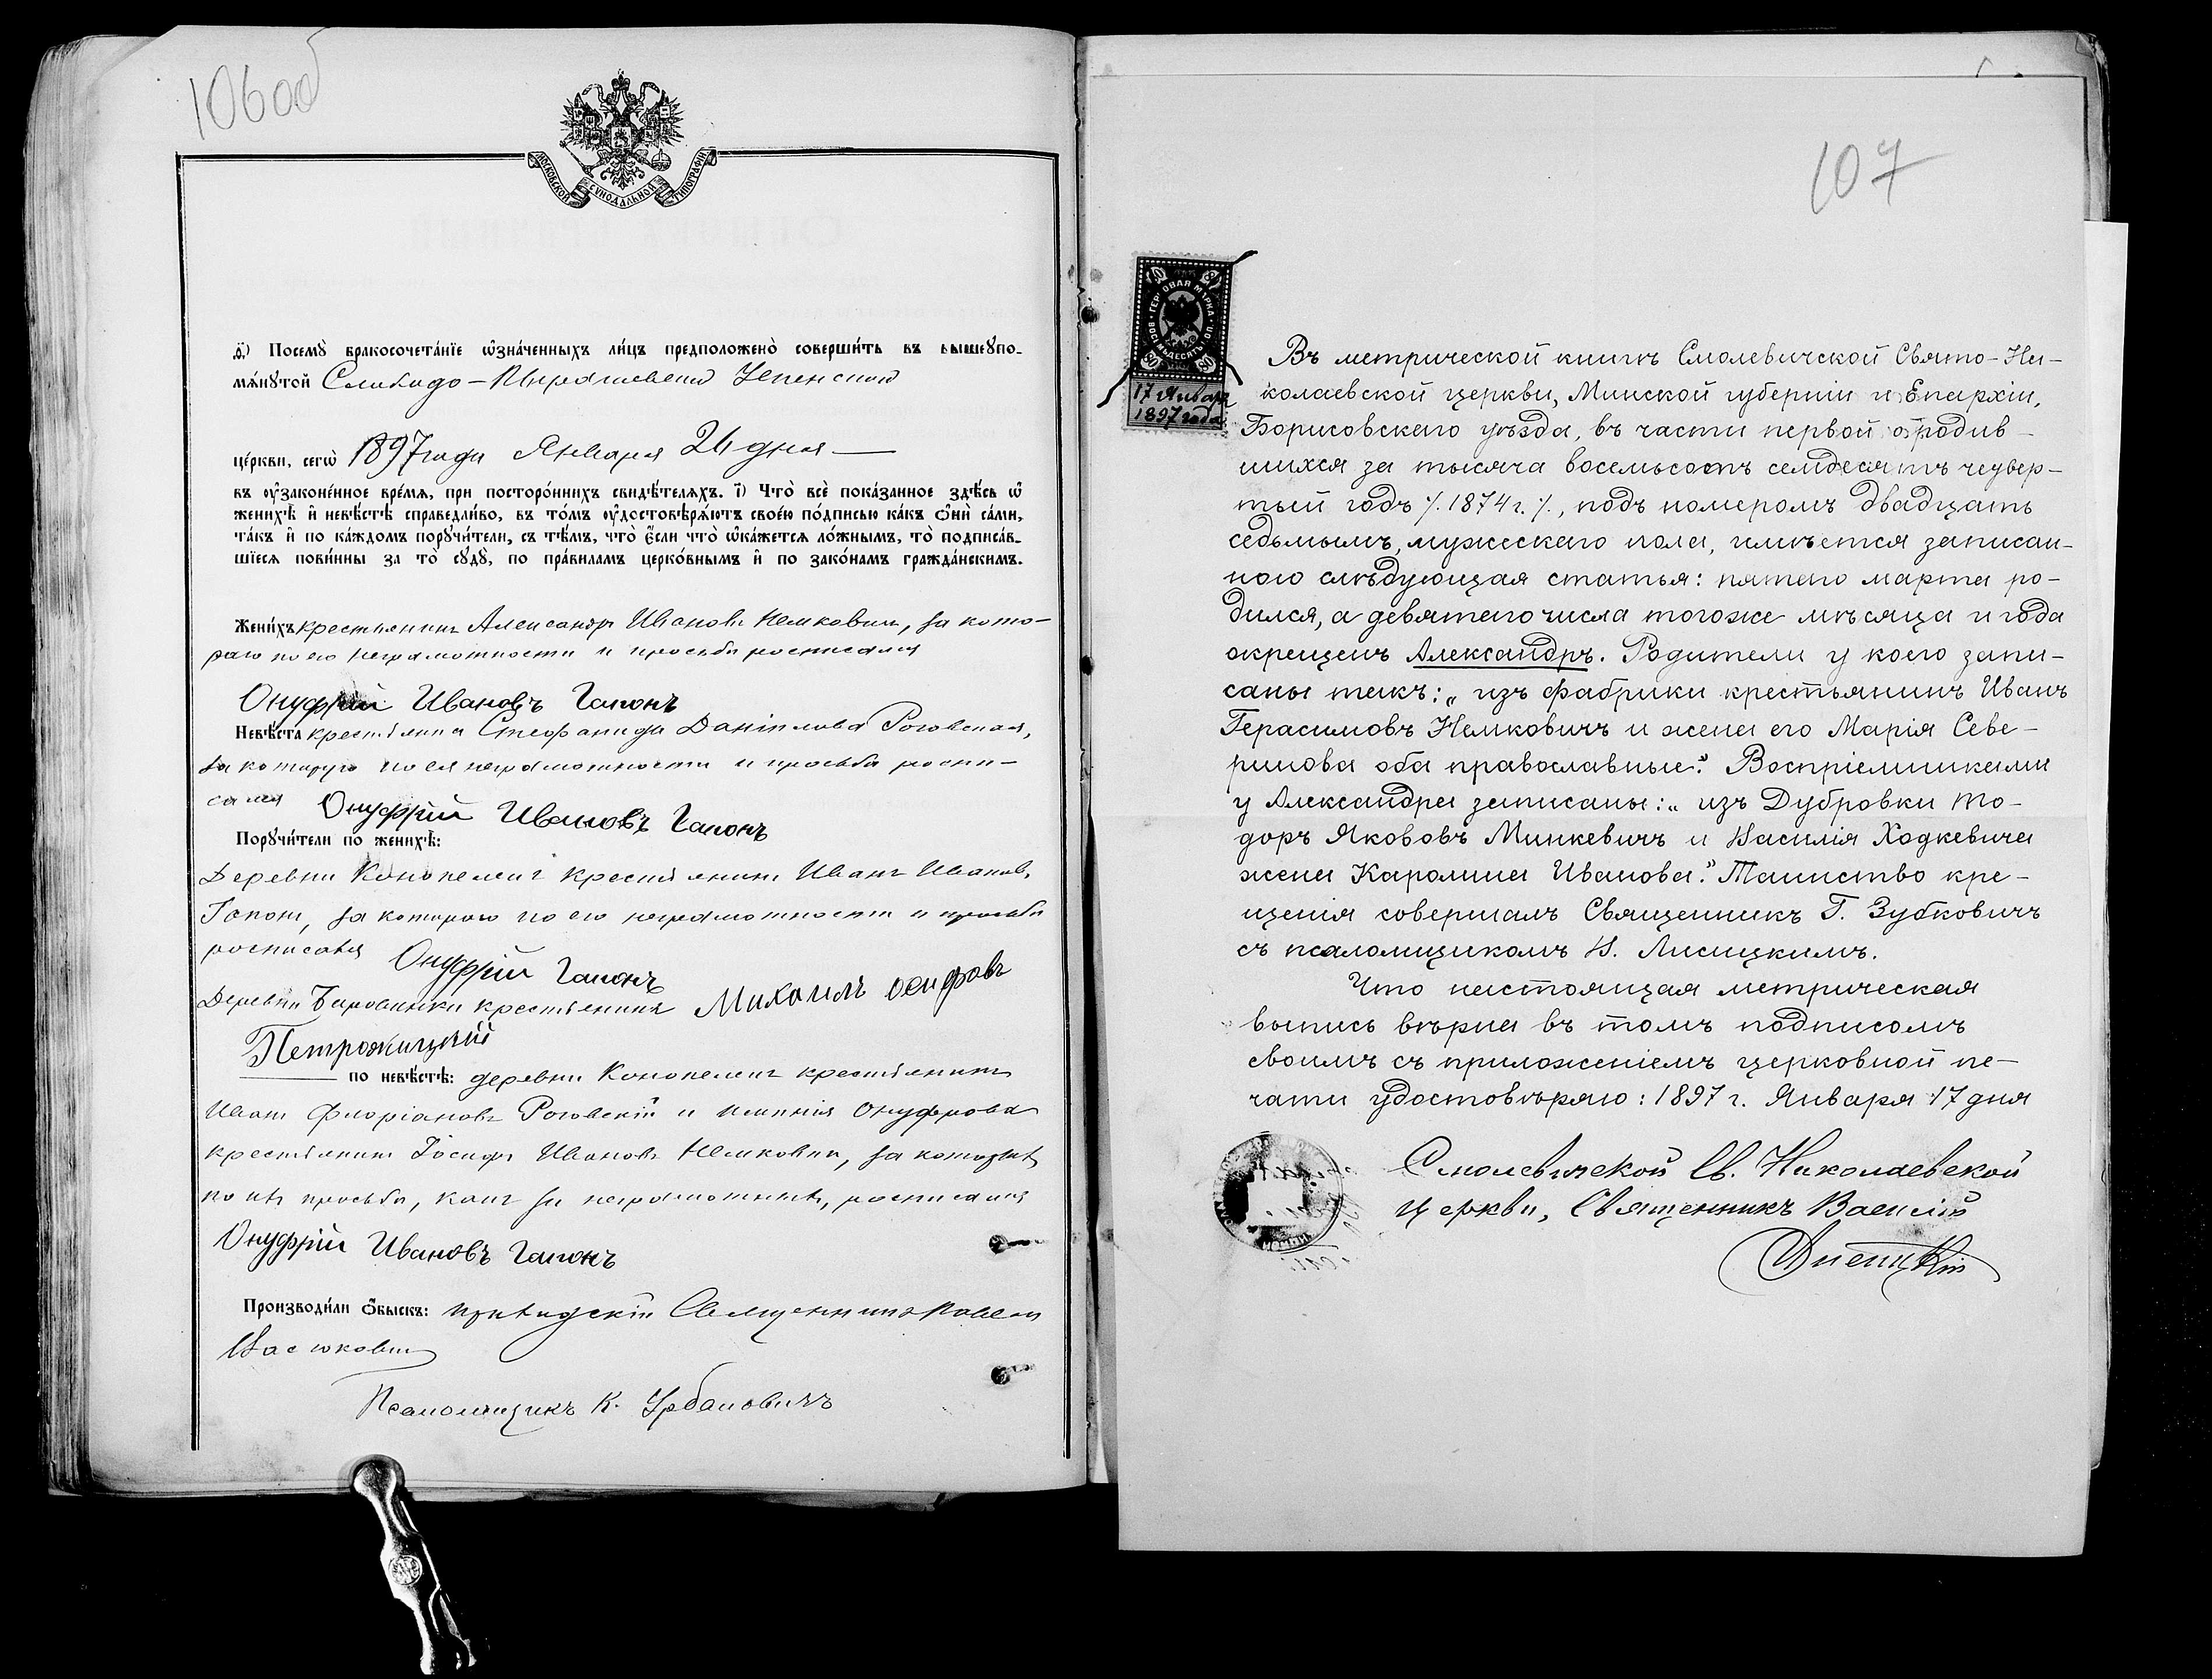 106об
МОСКОВСКОЙ СѴНОДАЛЬНОЙ ТИПОГРАФІИ
Посемꙋ̀ бракосочета́нїе ѡ҆зна́ченныхъ ли́цъ предположено̀ соверши́ть въ вышеꙋпо-
мѧ́нꙋтой Слободо-
це́ркви, сегѡ̀ 1897 года Января 26 дня —
въ ᲂу҆зако́ненное вре́мѧ, при посторо́ннихъ свидѣ́телѧхъ. і҃) Что̀ всѐ пока́занное здѣ́сь ѡ҆
женихѣ̀ и҆ невѣ́стѣ справедли́во, въ то́мъ ᲂу҆достовѣрѧ́ютъ свое́ю по́дписью ка́къ ѻ҆нѝ са́ми,
та́къ и҆ по ка́ждомъ порꙋчи́тели, съ тѣ́мъ, что̀ є҆́сли что̀ ѡ҆ка́жетсѧ ло́жнымъ, то̀ подписа́в-
шїесѧ пови́нны за то̀ сꙋдꙋ̀, по пра́виламъ церко́внымъ и҆ по зако́намъ гражда́нскимъ.
Жени́хъ крестьянинъ Александръ Ивановъ Немковичъ, за кото-
раго по его неграмотности и просьбѣ росписался
Онуфрій Ивановъ Гапонъ
Невѣ́ста крестьянка Стефанида Даніилова Роговская,
за которую по ея неграмотности и просьбѣ роспи-
сался Онуфрій Ивановъ Гапонъ
Порꙋчи́тели по женихѣ̀:
Деревни Конопеличъ крестьянинъ Иванъ Ивановъ
Гапонъ, за котораго по его неграмотности и просьбѣ
росписался Онуфрій Гапонъ
Деревни крестьянинъ Михаилъ Осифовъ
Петрожицкий
по невѣ́стѣ: деревни Конопеличъ крестьянинъ
Иванъ Флоріановъ Роговскій и имѣнія Онуфрова
крестьянинъ Іосифъ Ивановъ Немковичъ, за которыхъ
по ихъ просьбѣ, какъ за неграмотныхъ, росписался
Онуфрій Ивановъ Гапонъ
Производи́ли ѻ҆́быскъ: приходскій Священникъ Павелъ
Васюковичъ
Псаломщикъ К. Урбановичъ
107
ГЕРБОВАЯ МАРКА
ВОСЕМЬДЕСЯТЪ КОП.
80 80
17 Января
1897 года
Въ метрической книгѣ Смолевичской Свято-Ни-
колаевской церкви, Минской губерніи и Епархіи,
Борисовскаго уѣзда, въ части первой о родив-
шихся за тысяча восемьсотъ семдесятъ четвер-
тый годъ /. 1874 г. /., подъ номеромъ двадцать
седьмымъ, мужескаго пола, имѣется записан-
ною слѣдующая статья: пятаго марта ро-
дился, а девятаго числа тогоже мѣсяца и года
окрещенъ Александръ. Родители у коего запи-
саны такъ: „изъ фабрики крестьянинъ Иванъ
Герасимовъ Немковичъ и жена его Марія Севе-
ринова оба православные." Воспріемниками
у Александра записаны: „изъ Дубровки То-
доръ Якововъ Минкевичъ и Василія Ходкевича
жена Каролина Иванова." Таинство кре-
щенія совершалъ Священникъ Г. Зубковичъ
съ псаломщикомъ И. Лисицкимъ.
Что настоящая метрическая
выпись вѣрна въ томъ подписомъ
своимъ съ приложеніемъ церковной пе-
чати удостовѣряю: 1897 г. Января 17 дня
Смолевичской Св. Николаевской
церкви, Священникъ Василій